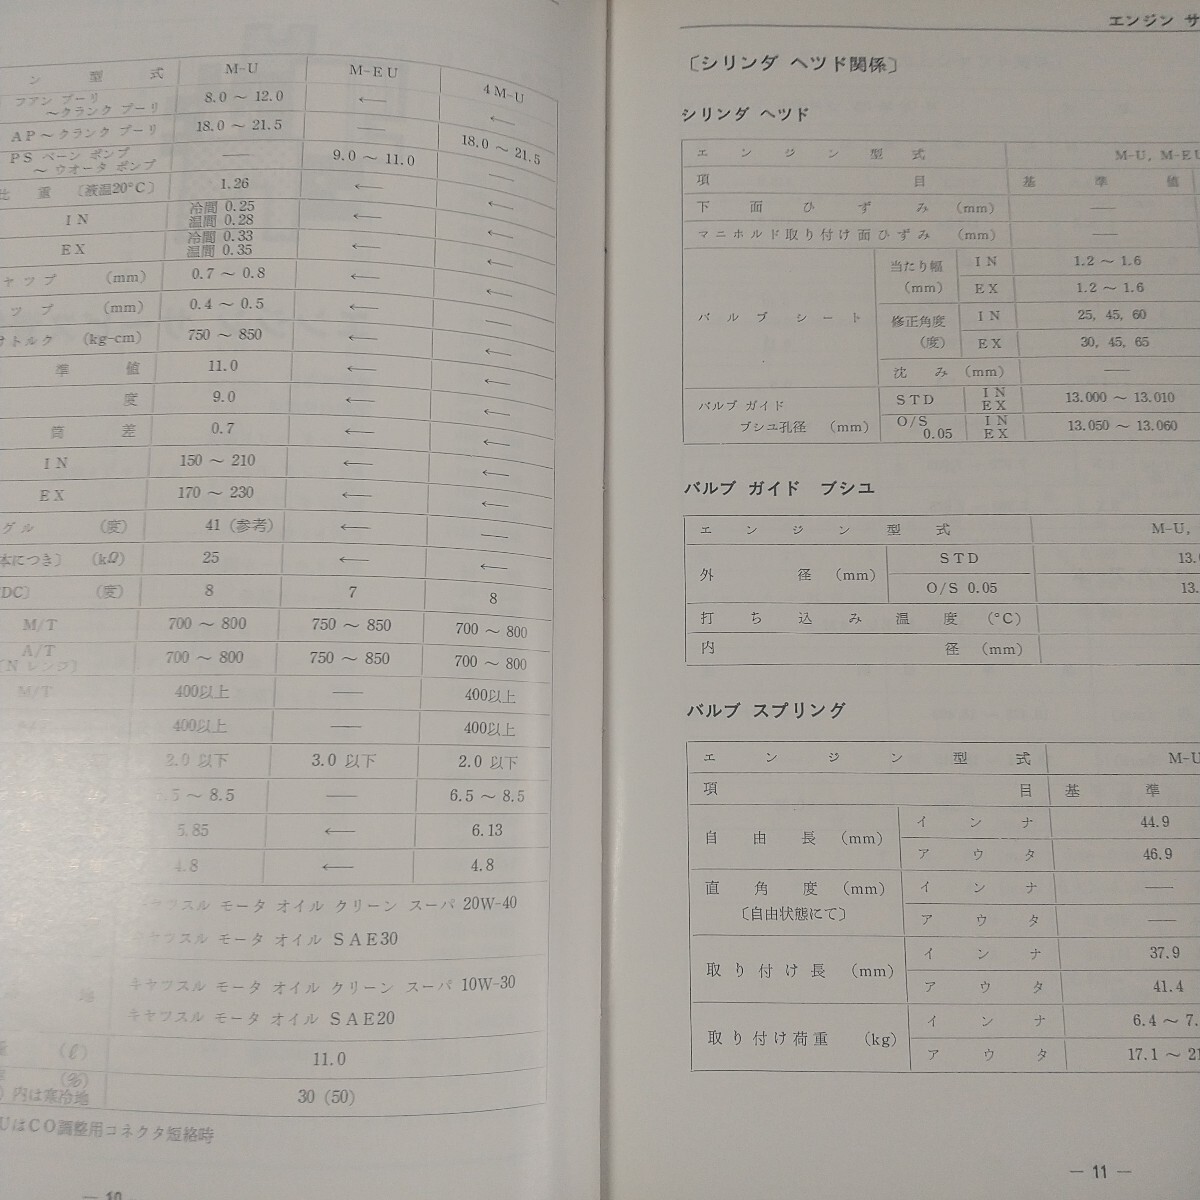 ン 型 式 M-U M-EU 4M-U
フアン プーリ 〜クランク プーリ 8.0 〜 12.0 ← ←
AP〜クランク プーリ 18.0 〜 21.5 — 18.0 〜 21.5
PS ベーン ポンプ 〜 ウオータ ポンプ — 9.0 〜 11.0 —
比 重 〔液温20°C〕 1.26 ← ←
IN 冷間 0.25 ← ←
温間 0.28
EX 冷間 0.33 ← ←
温間 0.35
ャップ (mm) 0.7 〜 0.8 ← ←
ップ (mm) 0.4 〜 0.5 ← ←
トルク (kg-cm) 750 〜 850 ← ←
準 値 11.0 ← ←
度 9.0 ← ←
筒 差 0.7 ← ←
IN 150 〜 210 ← ←
EX 170 〜 230 ← ←
グル (度) 41 (参考) ← —
本につき〕 (kΩ) 25 ← ←
DC〕 (度) 8 7 8
M/T 700 〜 800 750 〜 850 700 〜 800
A/T 〔N レンジ〕 700 〜 800 750 〜 850 700 〜 800
M/T 400以上 — 400以上
400以上 — 400以上
2.0 以下 3.0 以下 2.0 以下
5 〜 8.5 — 6.5 〜 8.5
5.85 ← 6.13
4.8 ← 4.8
キヤツスル モータ オイル クリーン スーパ 20W-40
キヤツスル モータ オイル SAE30
地 キヤツスル モータ オイル クリーン スーパ 10W-30
キヤツスル モータ オイル SAE20
量 (ℓ) 11.0
(%) 30 (50)
) 内は寒冷地
UはCO調整用コネクタ短絡時
— 10
エンジン サ
〔シリンダ ヘツド関係〕
シリンダ ヘツド
エンジン型式 M-U, M-EU
項目 基準値
下面ひずみ (mm) —
マニホルド取り付け面ひずみ (mm) —
バルブシート 当たり幅 (mm) IN 1.2 〜 1.6
EX 1.2 〜 1.6
修正角度 (度) IN 25, 45, 60
EX 30, 45, 65
沈み (mm) —
バルブ ガイド ブシユ孔径 (mm) STD IN EX 13.000 〜 13.010
O/S 0.05 IN EX 13.050 〜 13.060
バルブ ガイド ブシユ
エンジン型式 M-U,
外径 (mm) STD 13.
O/S 0.05 13.
打ち込み温度 (°C)
内径 (mm)
バルブ スプリング
エンジン型式 M-U
項目 基準
自由長 (mm) インナ 44.9
アウタ 46.9
直角度 (mm) 〔自由状態にて〕 インナ —
アウタ —
取り付け長 (mm) インナ 37.9
アウタ 41.4
取り付け荷重 (kg) インナ 6.4 〜 7.
アウタ 17.1 〜 21
— 11 —